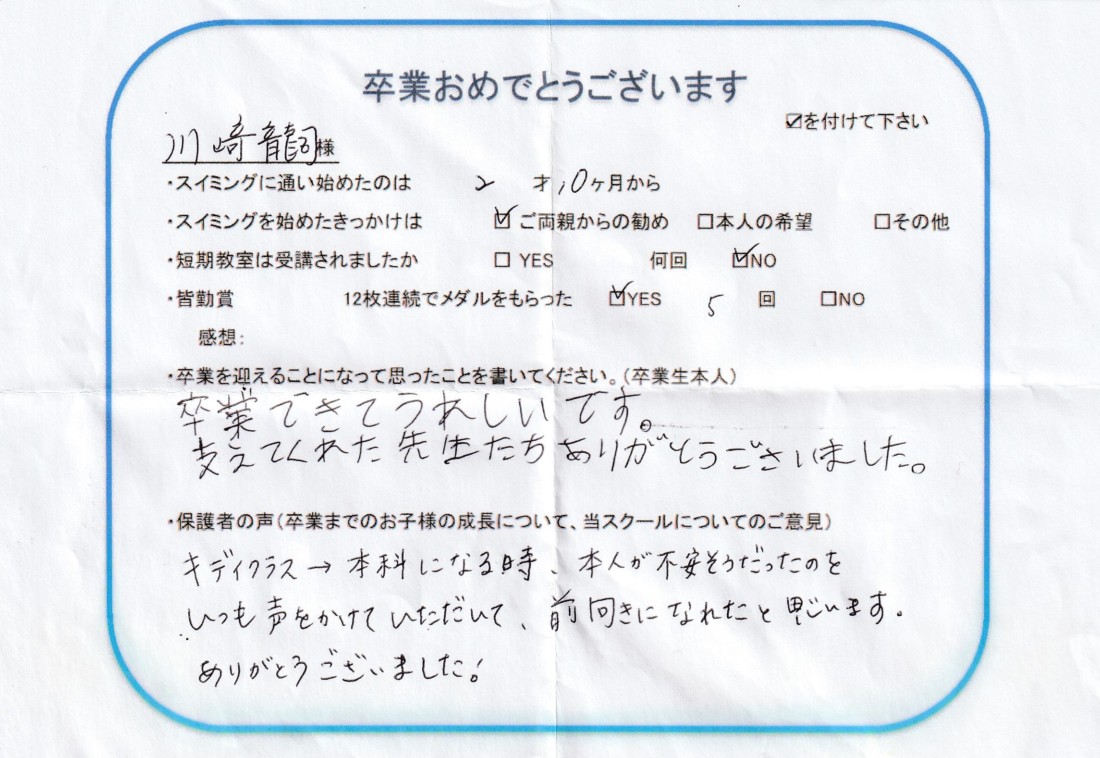 卒業おめでとうございます
☑を付けて下さい
川崎龍司様
・スイミングに通い始めたのは 2 才 10ヶ月から
・スイミングを始めたきっかけは ☑ご両親からの勧め □本人の希望 □その他
・短期教室は受講されましたか □ YES 何回 ☑NO
・皆勤賞 12枚連続でメダルをもらった ☑YES 5 回 □NO
感想:
・卒業を迎えることになって思ったことを書いてください。(卒業生本人)
卒業できてうれしいです。
支えてくれた先生たちありがとうございました。
・保護者の声(卒業までのお子様の成長について、当スクールについてのご意見)
キディクラス→本科になる時、本人が不安そうだったのを
いつも声をかけていただいて、前向きになれたと思います。
ありがとうございました!